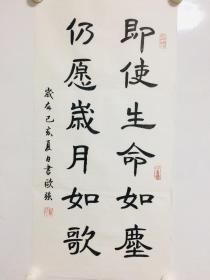 即使生命如塵
仍愿歲月如歌
歲在己亥夏月書欧强